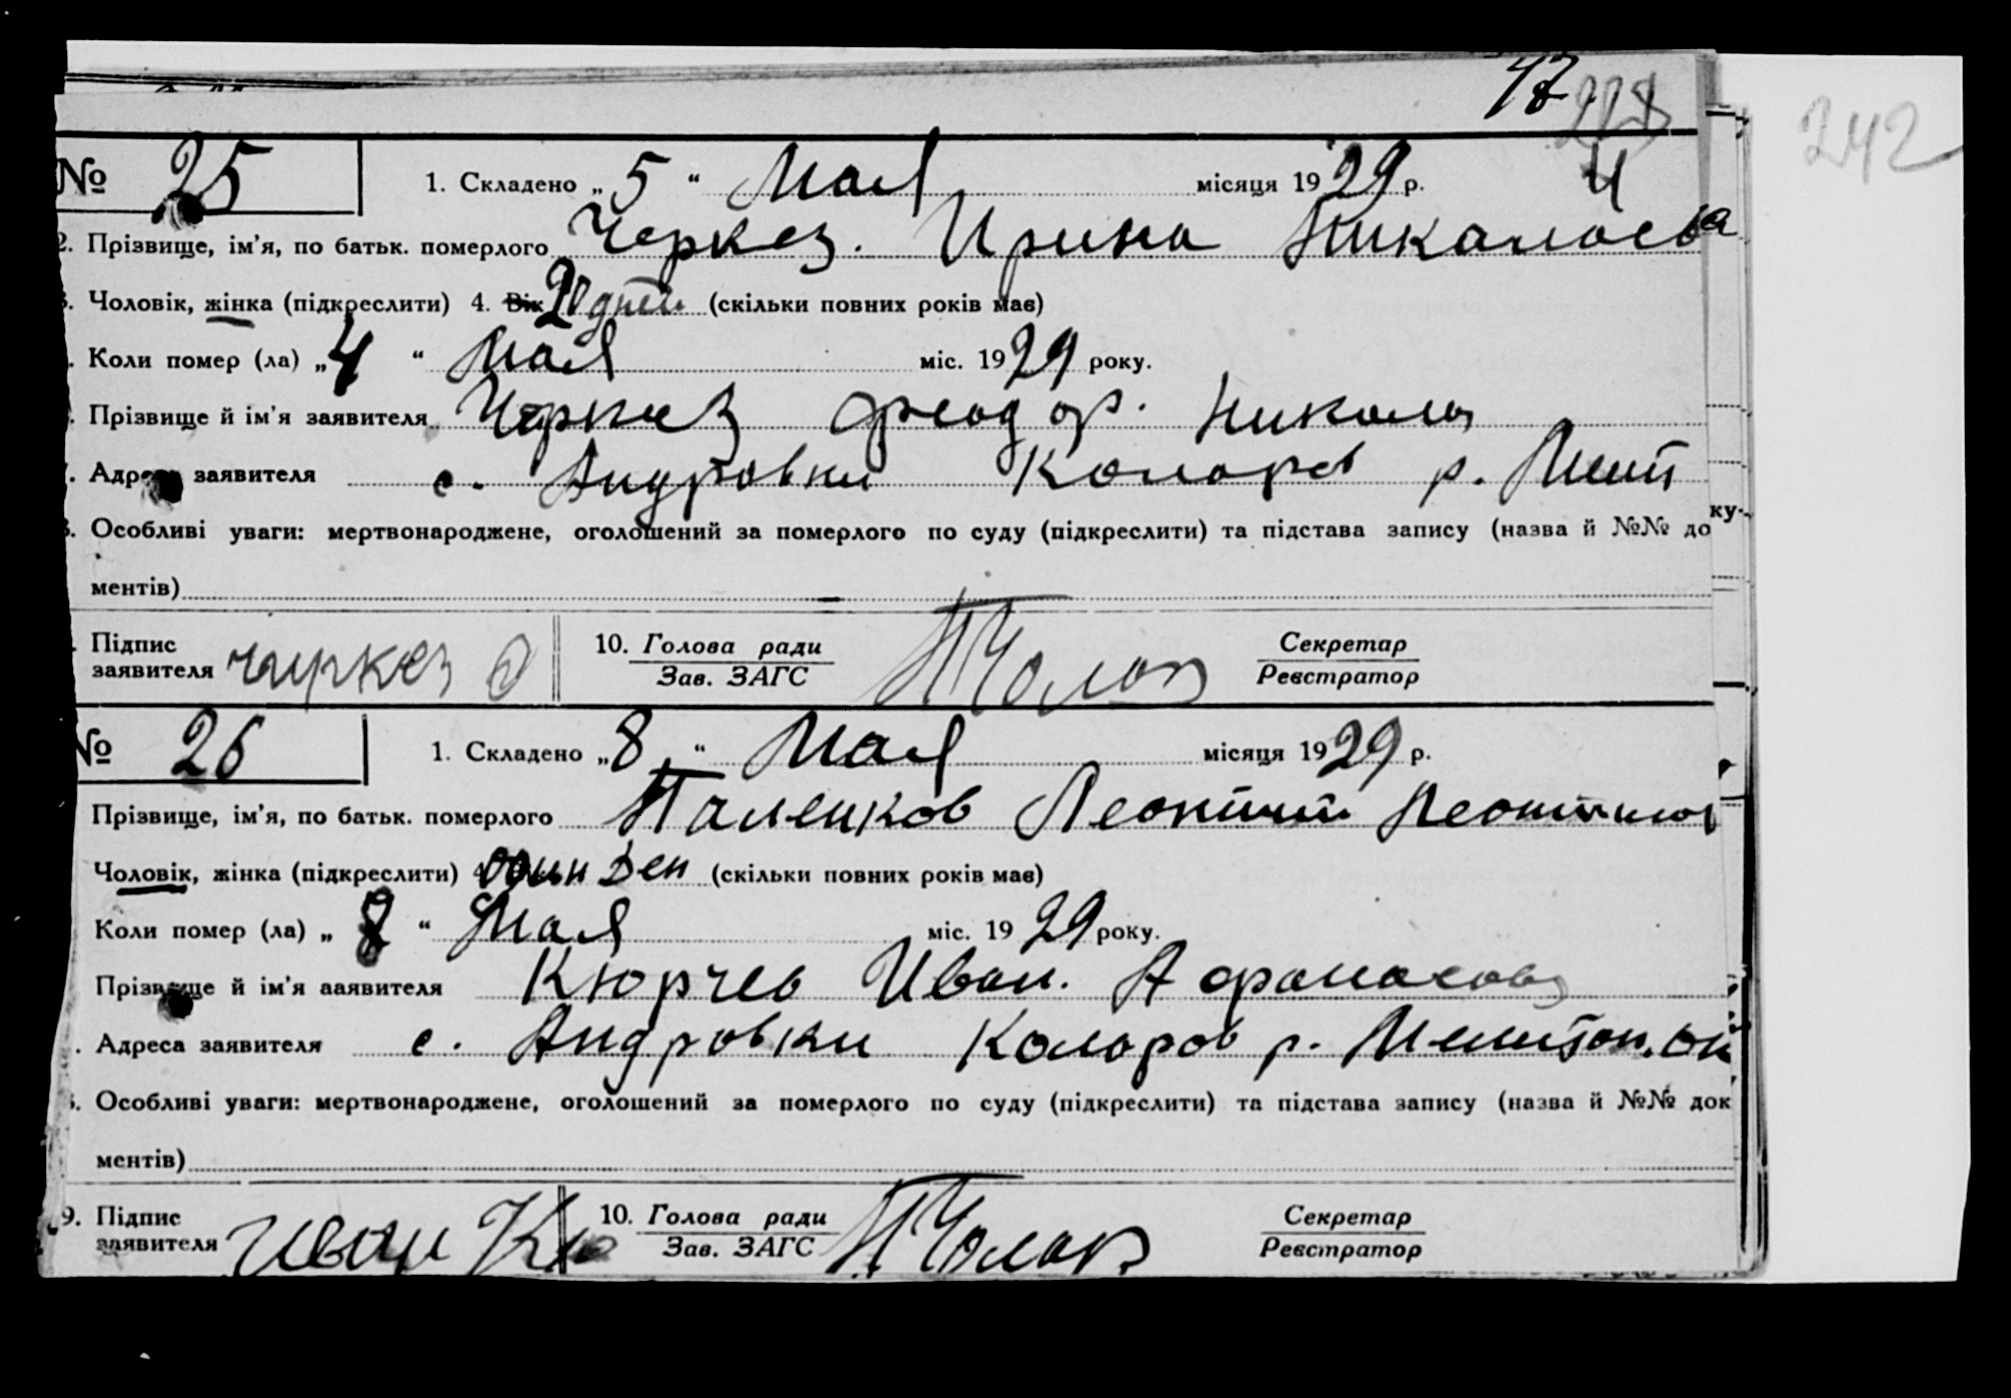 47 228
242
№ 25 1. Складено „5“ Мая місяця 1929 р. 4
2. Прізвище, ім’я, по батьк. померлого Черкез. Ирина Никалаева
3. Чоловік, жінка (підкреслити) 4. Вік 20 дней (скільки повних років має)
. Коли помер (ла) „4“ Мая міс. 1929 року.
. Прізвище й ім’я заявителя Черкез Феодор. Никола
7. Адреса заявителя с. Андровки Коларов р. Мелит
8. Особливі уваги: мертвонароджене, оголошений за померлого по суду (підкреслити) та підстава запису (назва й №№ доку-
ментів)
. Підпис заявителя Чиркез 10. Голова ради Секретар
Зав. ЗАГС Реєстратор
№ 26 1. Складено „8“ Мая місяця 1929 р.
Прізвище, ім’я, по батьк. померлого Паленков Леонтий Леонтиев
Чоловік, жінка (підкреслити) 4 один ден (скільки повних років має)
Коли помер (ла) „8“ Мая міс. 1929 року.
Прізвище й ім’я заявителя Кюрчев Иван. Афанасов
. Адреса заявителя с. Андровки Коларов р. Мелитоп. ок
8. Особливі уваги: мертвонароджене, оголошений за померлого по суду (підкреслити) та підстава запису (назва й №№ док
ментів)
9. Підпис заявителя Иван Кю 10. Голова ради Секретар
Зав. ЗАГС Реєстратор